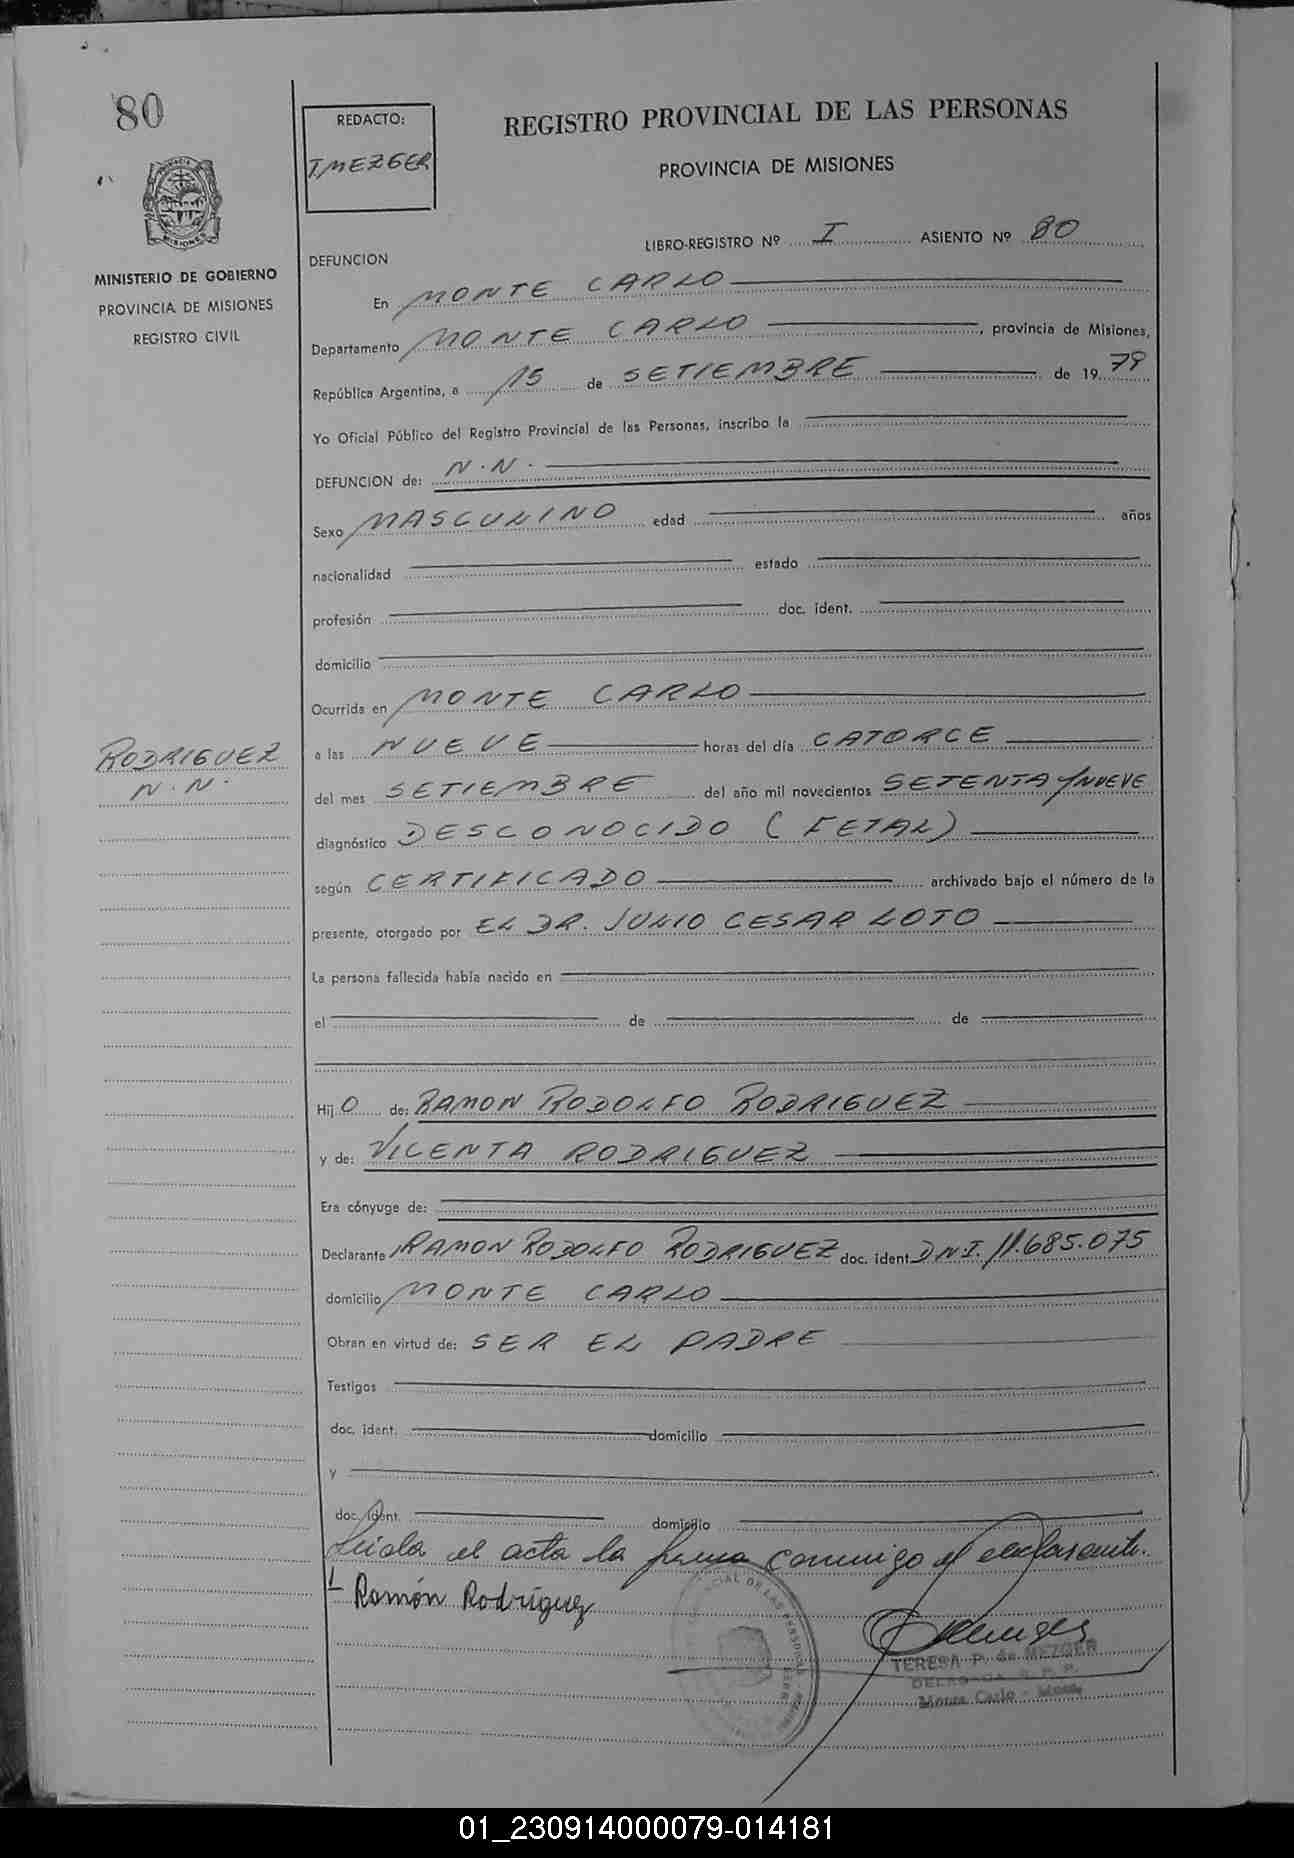 80
MINISTERIO DE GOBIERNO
PROVINCIA DE MISIONES
REGISTRO CIVIL
REDACTO:
T. MEZGER
REGISTRO PROVINCIAL DE LAS PERSONAS
PROVINCIA DE MISIONES
LIBRO-REGISTRO Nº I ASIENTO Nº 80
DEFUNCION
En MONTE CARLO
Departamento MONTE CARLO, provincia de Misiones,
República Argentina, a 15 de SETIEMBRE de 1979
Yo Oficial Público del Registro Provincial de las Personas, inscribo la
DEFUNCION de: N.N.
Sexo MASCULINO edad años
nacionalidad estado
profesión doc. ident.
domicilio
Ocurrida en MONTE CARLO
a las NUEVE horas del día CATORCE
RODRIGUEZ
N.N.
del mes SETIEMBRE del año mil novecientos SETENTA y NUEVE
diagnóstico DESCONOCIDO (FETAL)
según CERTIFICADO archivado bajo el número de la
presente, otorgado por EL DR. JULIO CESAR LOTO
La persona fallecida había nacido en
el de de
Hijo de: RAMON RODOLFO RODRIGUEZ
y de: VICENTA RODRIGUEZ
Era cónyuge de:
Declarante RAMON RODOLFO RODRIGUEZ doc. ident. DNI. 11.685.075
domicilio MONTE CARLO
Obran en virtud de: SER EL PADRE
Testigos
doc. ident. domicilio
y
doc. ident. domicilio
Leída el acta la firma conmigo el declarante.
Ramón Rodríguez
TERESA P. de MEZGER
DELEGADA R. P. P.
Monte Carlo - Mnes.
01_230914000079-014181